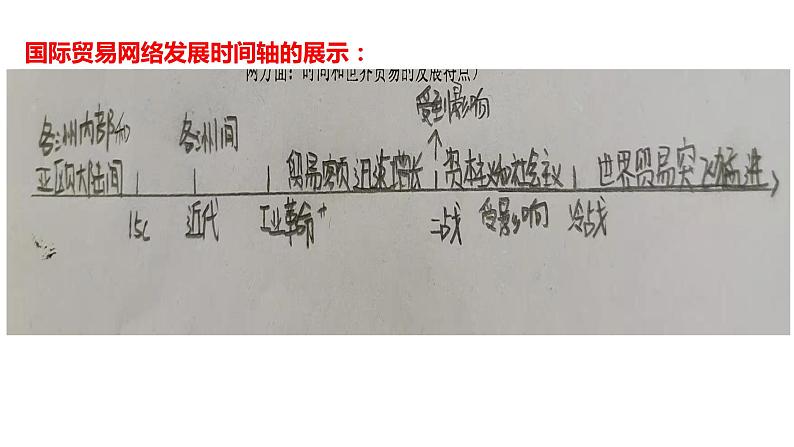 国际贸易网络发展时间轴的展示：
两方面：时间和世界贸易的发展特点）
受到影响
各洲内部和 各洲间
亚欧大陆间 贸易额迅速增长 资本主义和社会主义 世界贸易突飞猛进
15c 近代 工业革命 二战 受影响 冷战